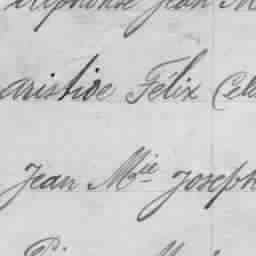 Alphonse Jean M
Aristide Félix Cele
Jean Mie Joseph